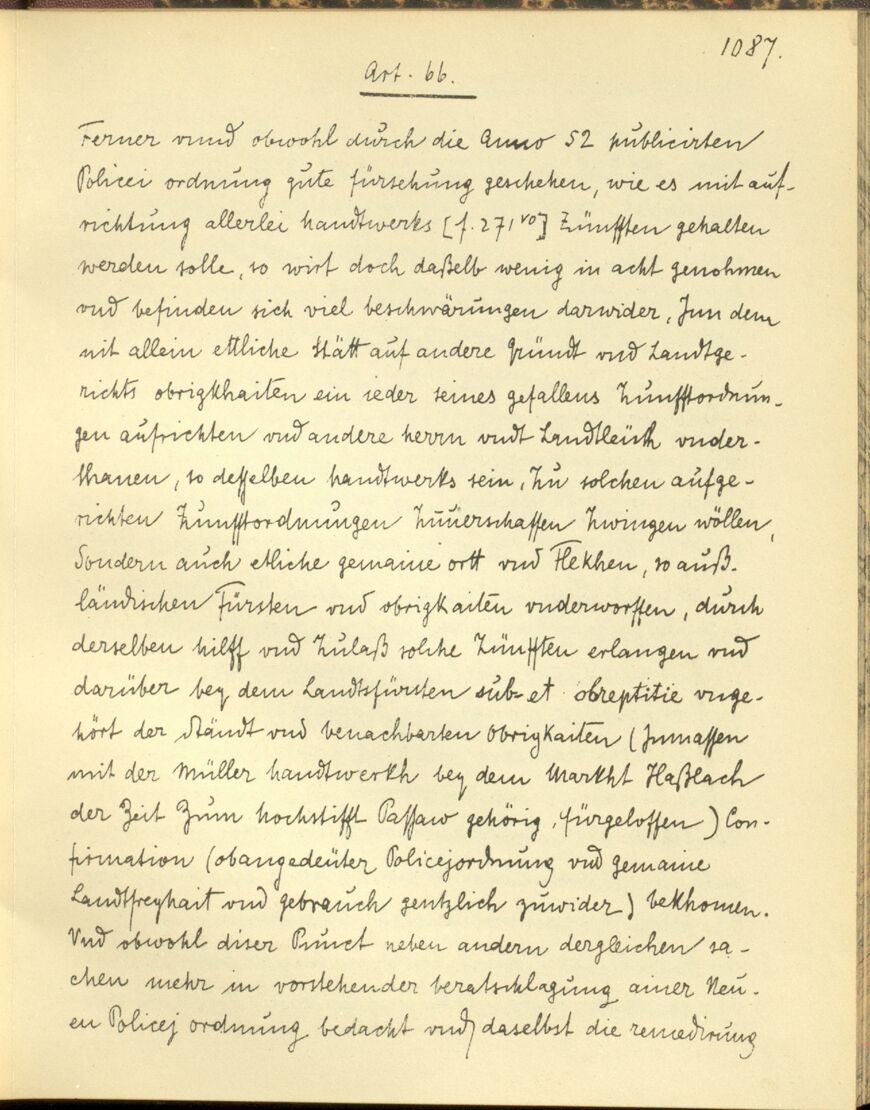 1087.
Art. 66.
Ferner vnnd obwohl durch die Anno 52 publicirten
Policei ordnung gute fürsehung geschehen, wie es mit auf-
richtung allerlei handtwerks [f. 271vo] Zünfften gehalten
werden solle, so wirt doch daßelb wenig in acht genohmen
vnd befinden sich viel beschwärungen darwider, Inn dem
nit allein ettliche Stätt auf andere Gründt vnd Landtge-
richts obrigkhaiten ein ieder seines gefallens Zunfftordnun-
gen aufrichten vnd andere herrn vndt Landtleüth vnder-
thanen, so desselben handtwerks sein, Zu solchen aufge-
richten Zunfftordnungen Zuuerschaffen Zwingen wöllen,
Sondern auch etliche gemaine ortt vnd Flekhen, so auß-
ländischen Fürsten vnd obrigkaiten vnderworffen, durch
derselben hilff vnd Zulaß solche Zünfften erlangen vnd
darüber bey dem Landtsfürsten sub- et obreptitie vnge-
hört der Ständt vnd benachbarten Obrigkaiten (Inmassen
mit der Müller handtwerkh bey dem Markht Haßlach
der Zeit Zum hochstifft Passaw gehörig, fürgeloffen) Con-
firmation (obangedeüter Policejordnung vnd gemaine
Landtfreyhait vnd gebrauch gentzlich zuwider) bekhomen.
Vnd obwohl diser Punct neben andern dergleichen sa-
chen mehr in vorstehender beratschlagung ainer Neu-
en Policej ordnung bedacht vnd daselbst die remedirung